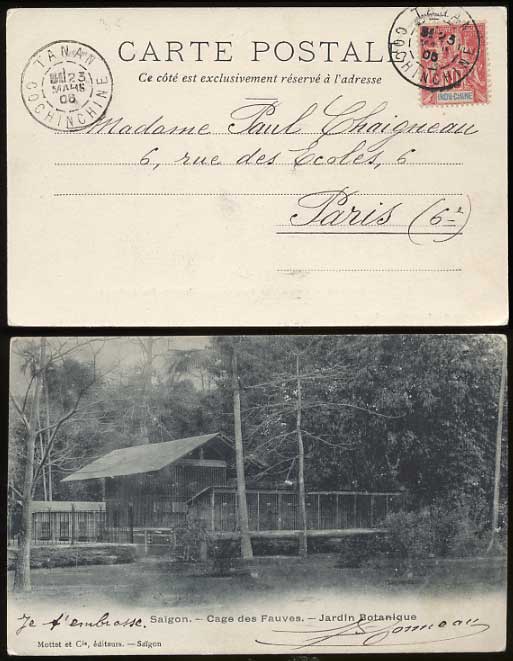 CARTE POSTALE
Ce côté est exclusivement réservé à l'adresse
TANAN
23
MARS
06
COCHINCHINE
TANAN
23
06
COCHINCHINE
10
INDO-CHINE
Madame Paul Chaigneau
6, rue des Ecoles, 6
Paris (6e)
Saïgon. — Cage des Fauves. — Jardin Botanique
Je t'embrasse.
Mottet et Cie, éditeurs. — Saïgon